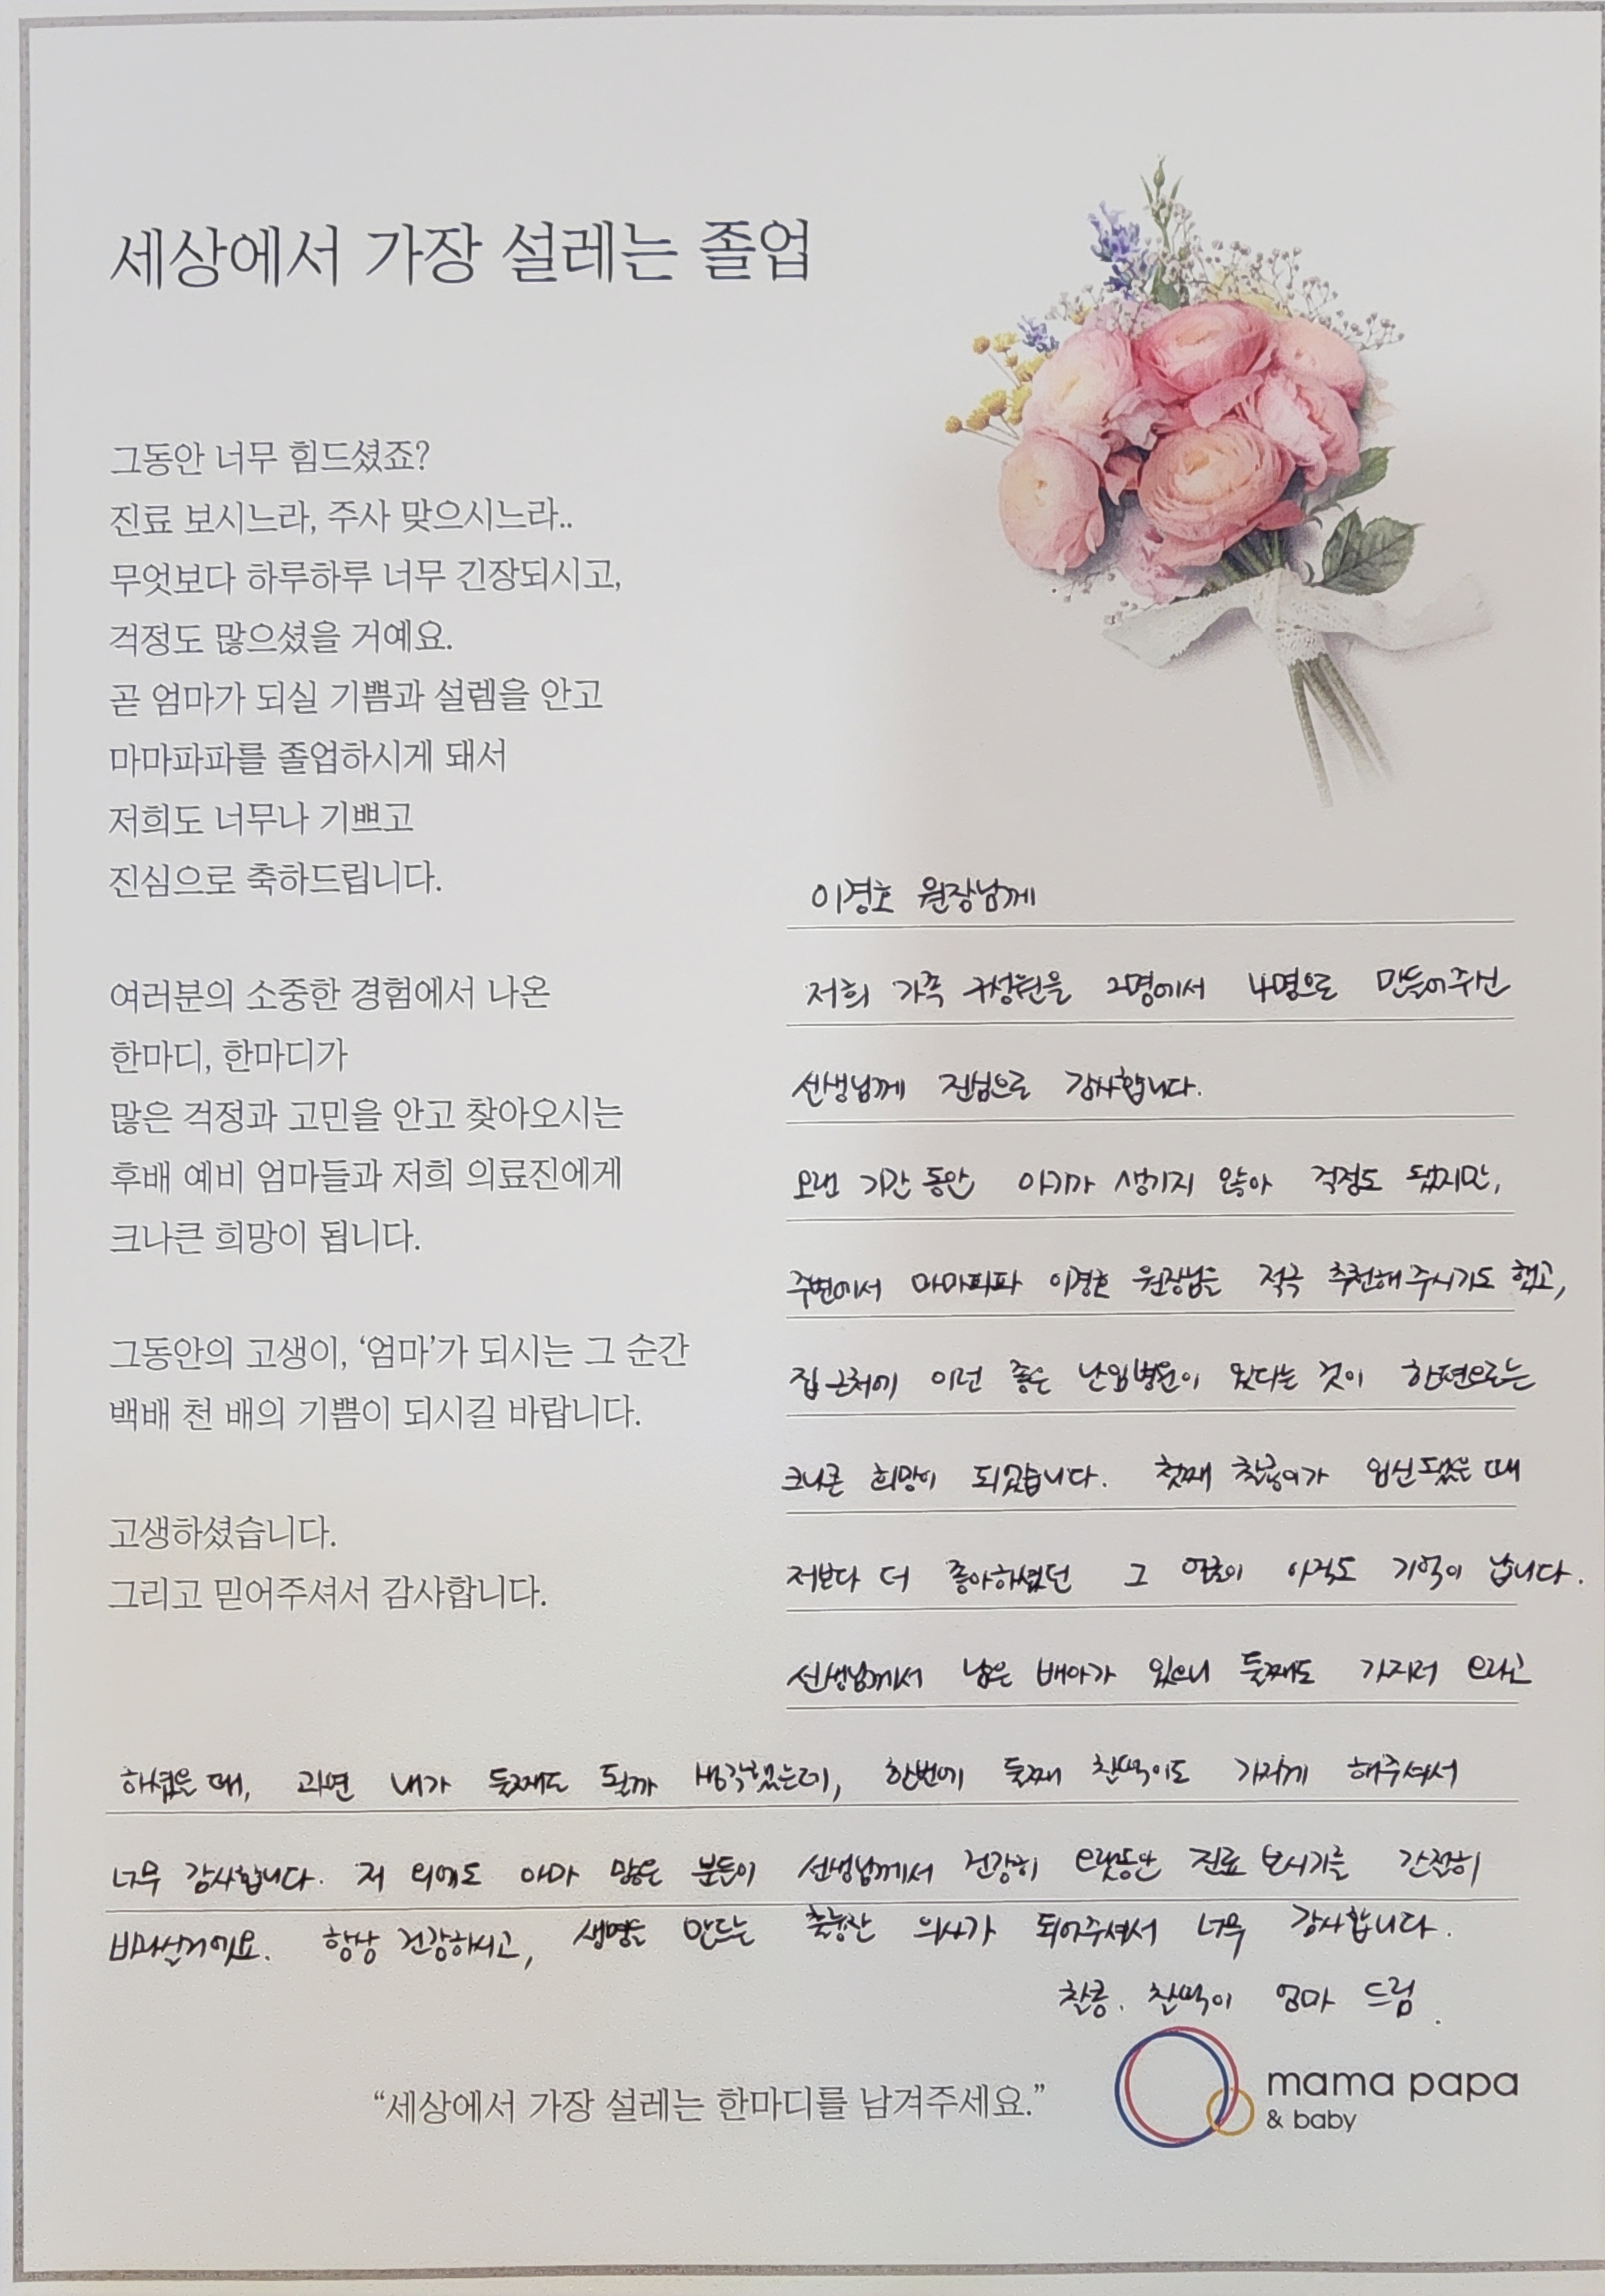 세상에서 가장 설레는 졸업
그동안 너무 힘드셨죠?
진료 보시느라, 주사 맞으시느라..
무엇보다 하루하루 너무 긴장되시고,
걱정도 많으셨을 거예요.
곧 엄마가 되실 기쁨과 설렘을 안고
마마파파를 졸업하시게 돼서
저희도 너무나 기쁘고
진심으로 축하드립니다.
여러분의 소중한 경험에서 나온
한마디, 한마디가
많은 걱정과 고민을 안고 찾아오시는
후배 예비 엄마들과 저희 의료진에게
크나큰 희망이 됩니다.
그동안의 고생이, ‘엄마’가 되시는 그 순간
백배 천 배의 기쁨이 되시길 바랍니다.
고생하셨습니다.
그리고 믿어주셔서 감사합니다.
이경호 원장님께
저희 가족 구성원을 2명에서 4명으로 만들어주신
선생님께 진심으로 감사합니다.
오랜 기간 동안 아기가 생기지 않아 걱정도 됐지만,
주변에서 마마파파 이경호 원장님을 적극 추천해 주시기도 했고,
집 근처에 이런 좋은 난임병원이 있다는 것이 한편으로는
크나큰 희망이 되었습니다. 첫째 찰콩이가 임신됐을 때
저보다 더 좋아하셨던 그 얼굴이 아직도 기억이 납니다.
선생님께서 남은 배아가 있으니 둘째도 가지러 오라고
하셨을 때, 과연 내가 둘째도 될까 생각했는데, 한번에 둘째 찰떡이도 가지게 해주셔서
너무 감사합니다. 저 외에도 아마 많은 분들이 선생님께서 건강히 오랫동안 진료 보시기를 간절히
바라실거에요. 항상 건강하시고, 생명을 만드는 의사가 되어주셔서 너무 감사합니다.
찰콩. 찰떡이 엄마 드림.
“세상에서 가장 설레는 한마디를 남겨주세요.”
mama papa
& baby